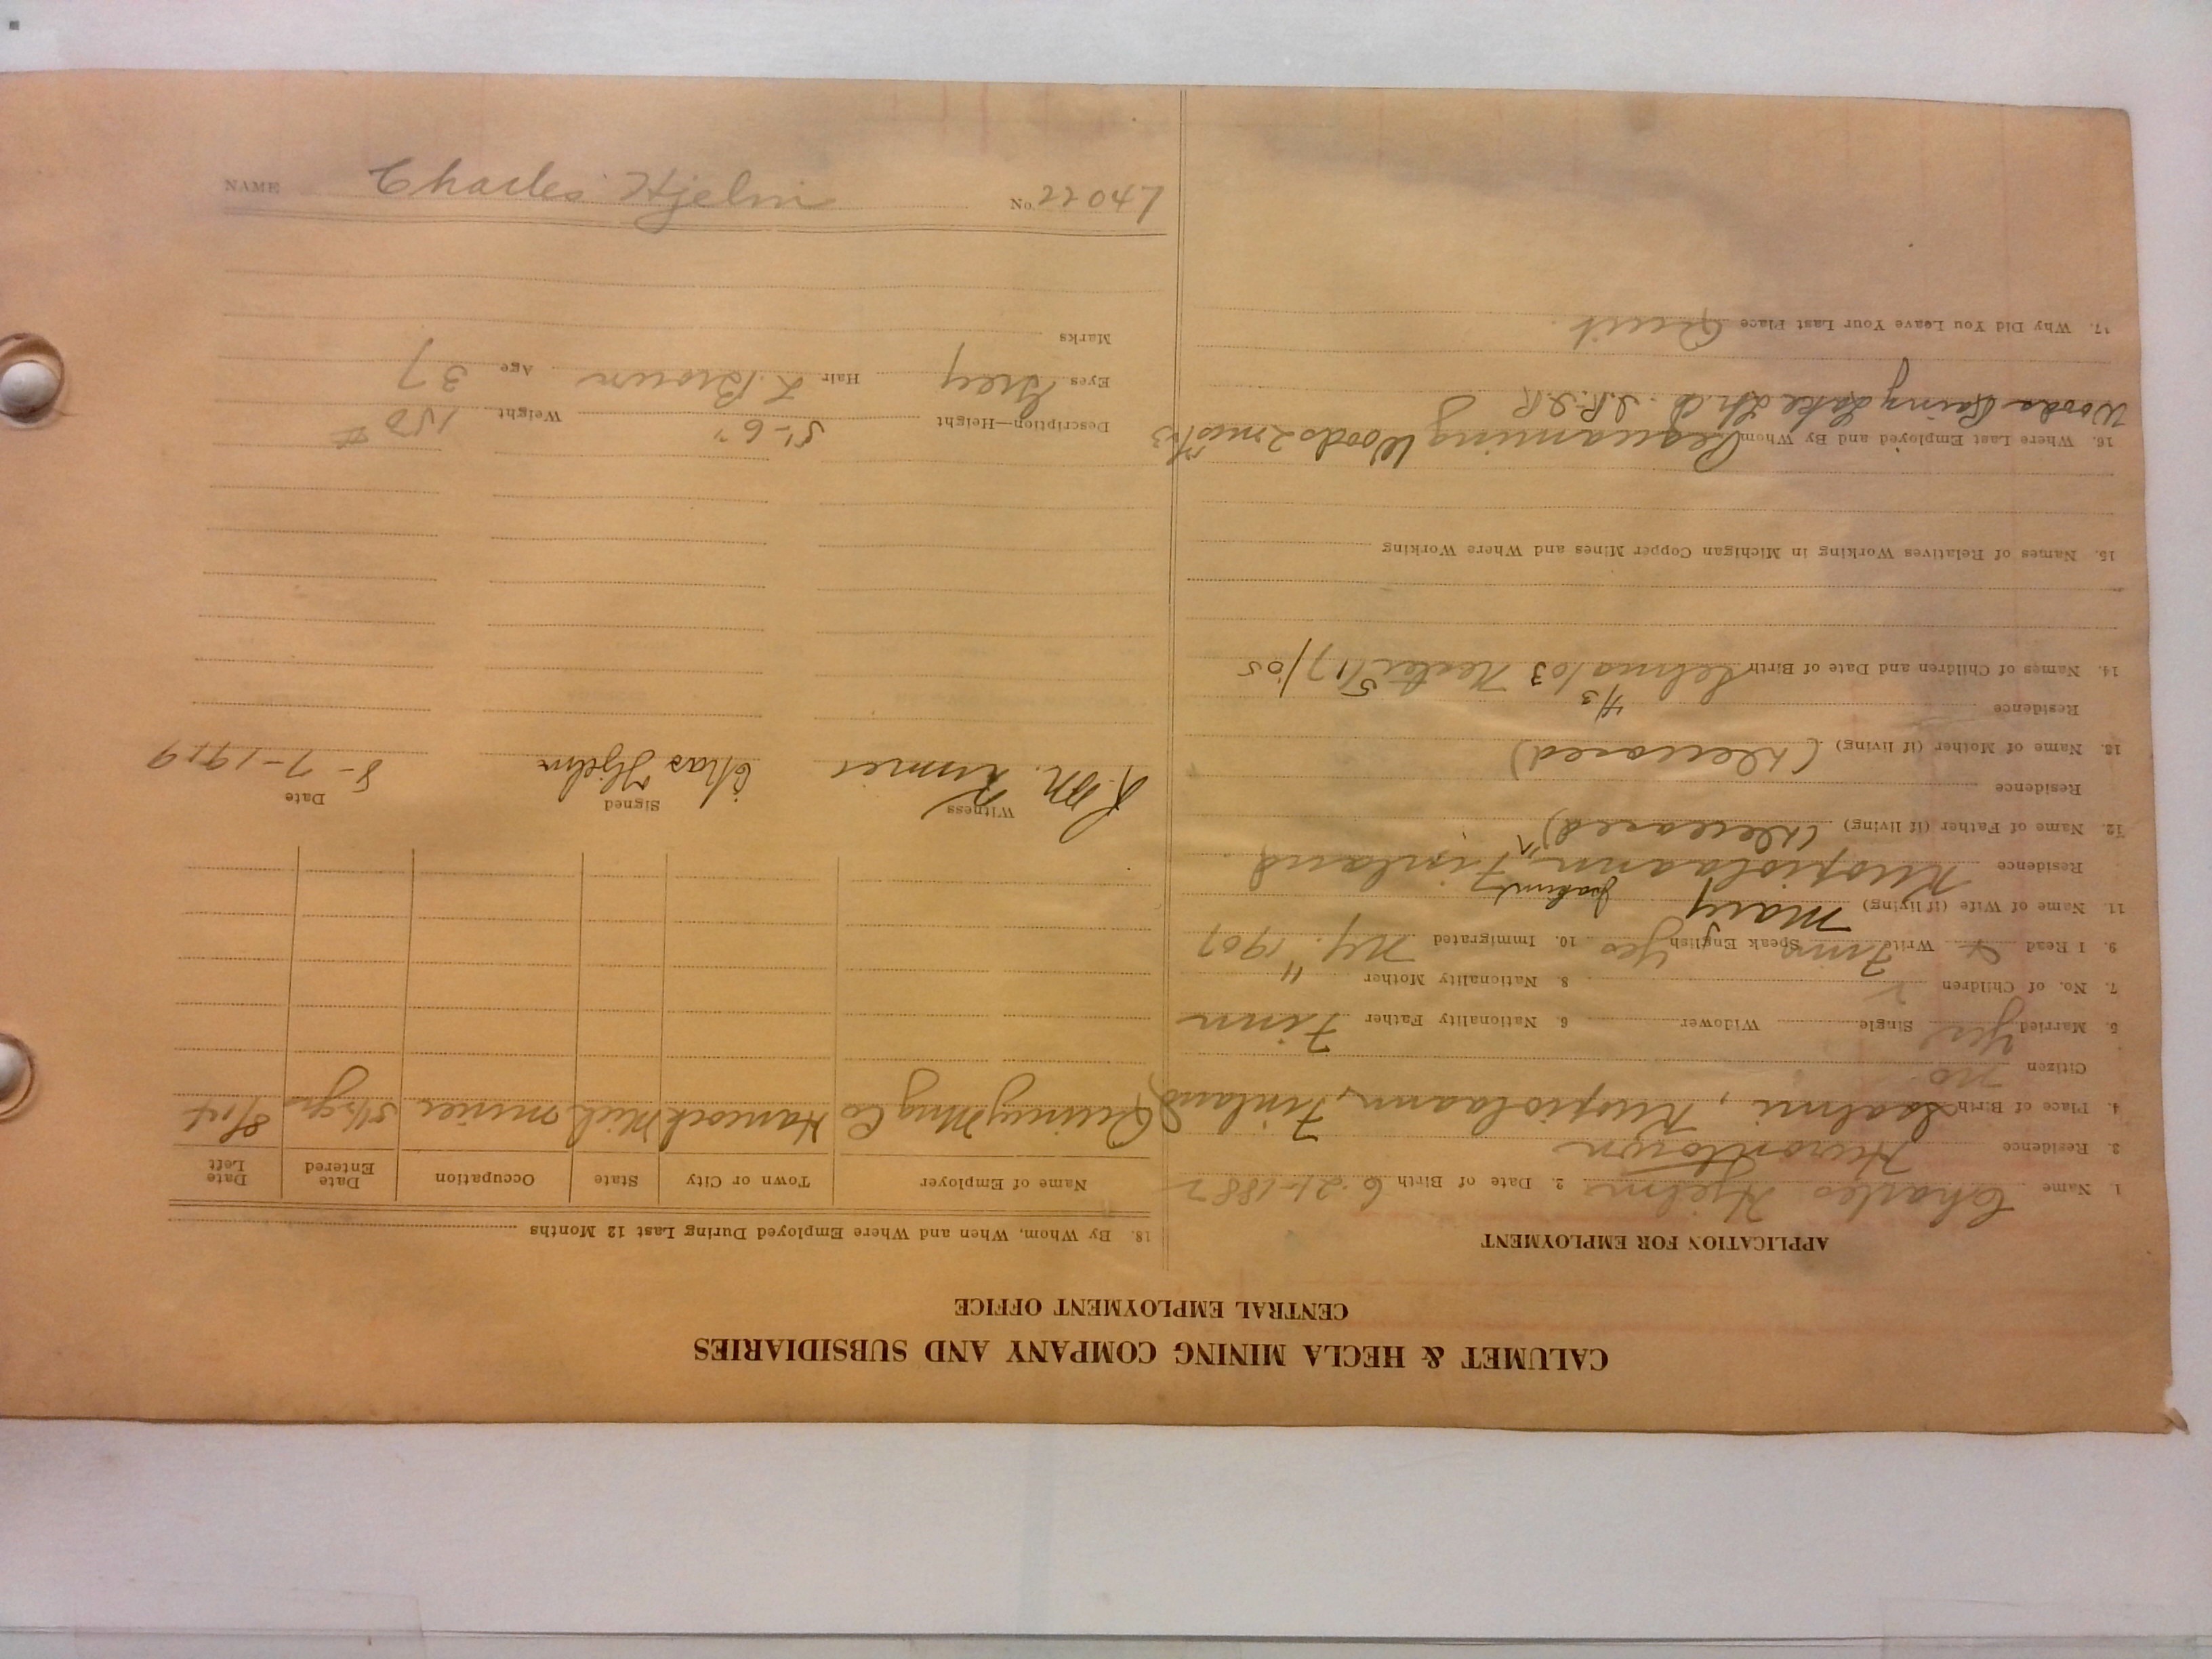 CALUMET & HECLA MINING COMPANY AND SUBSIDIARIES
CENTRAL EMPLOYMENT OFFICE
APPLICATION FOR EMPLOYMENT
1. Name Charles Hjelm 2. Date of Birth 6-21-1882
3. Residence Hurontown
4. Place of Birth Laalmi, Kuopiolaann, Finland
Citizen no
5. Married Yes Single Widower 6. Nationality Father Finn
7. No. of Children 2 8. Nationality Mother "
9. I Read & Write Finn Speak English Yes 10. Immigrated N.Y. 1907
11. Name of Wife (if living) Mary
Residence Kuopiolaann, Finland
12. Name of Father (if living) (Deceased)
Residence
13. Name of Mother (if living) (Deceased)
Residence
14. Names of Children and Date of Birth Selma 4/3/03 5/17/05
15. Names of Relatives Working in Michigan Copper Mines and Where Working
16. Where Last Employed and By Whom Pequaming Woods 2 mos
Woods Rainy Lake
17. Why Did You Leave Your Last Place Quit
18. By Whom, When and Where Employed During Last 12 Months
Name of Employer Town or City State Occupation Date Entered Date Left
Quincy Mng Co Hancock Mich miner
Witness Signed Date
Chas Hjelm 8-7-1919
Description—Height 5'-6" Weight 150 #
Eyes Grey Hair L. Brown Age 37
Marks
NAME Charles Hjelm No. 22047